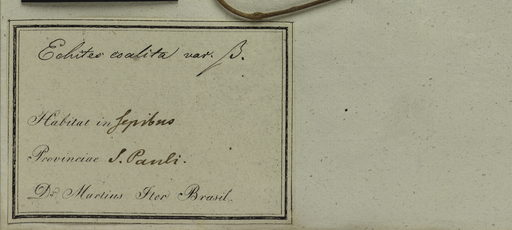 Echites coalita var. β.
Habitat in sepibus
Provinciae S. Pauli.
Dr Martius Iter Brasil.